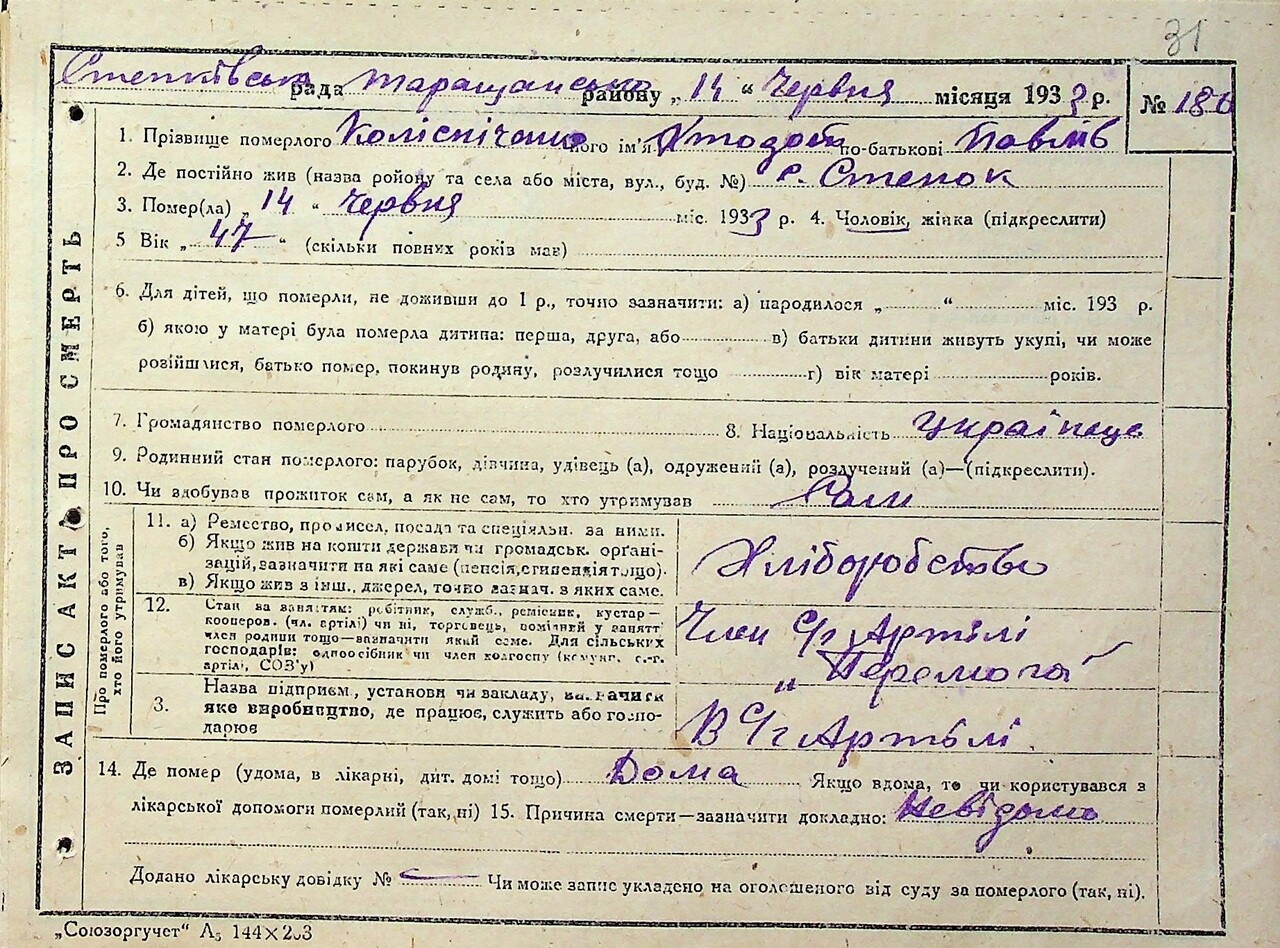 31
Степківська рада Таращанського району „14“ Червня місяця 1933 р. № 186
ЗАПИС АКТА ПРО СМЕРТЬ
1. Прізвище померлого його ім'я по-батькові Павлів
2. Де постійно жив (назва району та села або міста, вул., буд. №) с. Степок
3. Помер(ла) „14“ Червня міс. 1933 р. 4. Чоловік, жінка (підкреслити)
5 Вік „47“ (скільки повних років мав)
6. Для дітей, що померли, не доживши до 1 р., точно зазначити: а) народилося „ “ міс. 193 р.
б) якою у матері була померла дитина: перша, друга, або в) батьки дитини живуть укупі, чи може
розійшлися, батько помер, покинув родину, розлучилися тощо г) вік матері років.
7. Громадянство померлого 8. Національність Українець
9. Родинний стан померлого: парубок, дівчина, удівець (а), одружений (а), розлучений (а)—(підкреслити).
10. Чи здобував прожиток сам, а як не сам, то хто утримував Сам
Про померлого або того, хто його утримував
11. а) Ремество, промисел, посада та спеціяльн. за ними.
б) Якщо жив на кошти держави чи громадськ. орґані-
зацій, зазначити на які саме (пенсія, стипендія тощо).
в) Якщо жив з інш., джерел, точно зазнач. з яких саме.
Хліборобство
12. Стан за заняттям: робітник, служб., ремісник, кустар—
кооперов. (чл. артілі) чи ні, торговець, помічний у занятті
член родини тощо—зазначити який саме. Для сільських
господарів: одноосібник чи член колгоспу (комуни, с.-г.
артілі, СОЗ'у)
Член С/г Артілі
„Перемога“
3. Назва підприєм., установи чи закладу, зазначити
яке виробництво, де працює, служить або госпо-
дарює
В С/г Артілі
14. Де помер (удома, в лікарні, дит. домі тощо) Дома Якщо вдома, то чи користувався з
лікарської допомоги померлий (так, ні) 15. Причина смерти—зазначити докладно: Невідомо
Додано лікарську довідку № — Чи може запис укладено на оголошеного від суду за померлого (так, ні).
„Союзоргучет“ А₅ 144×203